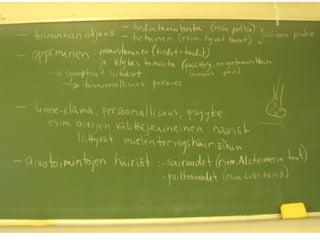 - toiminnan ohjaus - tiedostamatonta (esim. pelko)
- tietoinen (esim. hyvät tavat)
sisäinen puhe
- oppiminen : muistaminen (tiedot + taidot)
ja älykäs toiminta (päättely, ongelmanratkaisu,
→ synaptiset liitokset
→ toiminnallisuus paranee
- tunne-elämä, persoonallisuus, psyyke
esim. aivojen välittäjäaineinen häiriöt
liittyvät mielenterveyshäiriöihin
- aivotoimintojen häiriöt : - sairaudet (esim. Alzheimerin tauti)
- poikkeavuudet (esim. lukihäiriö)